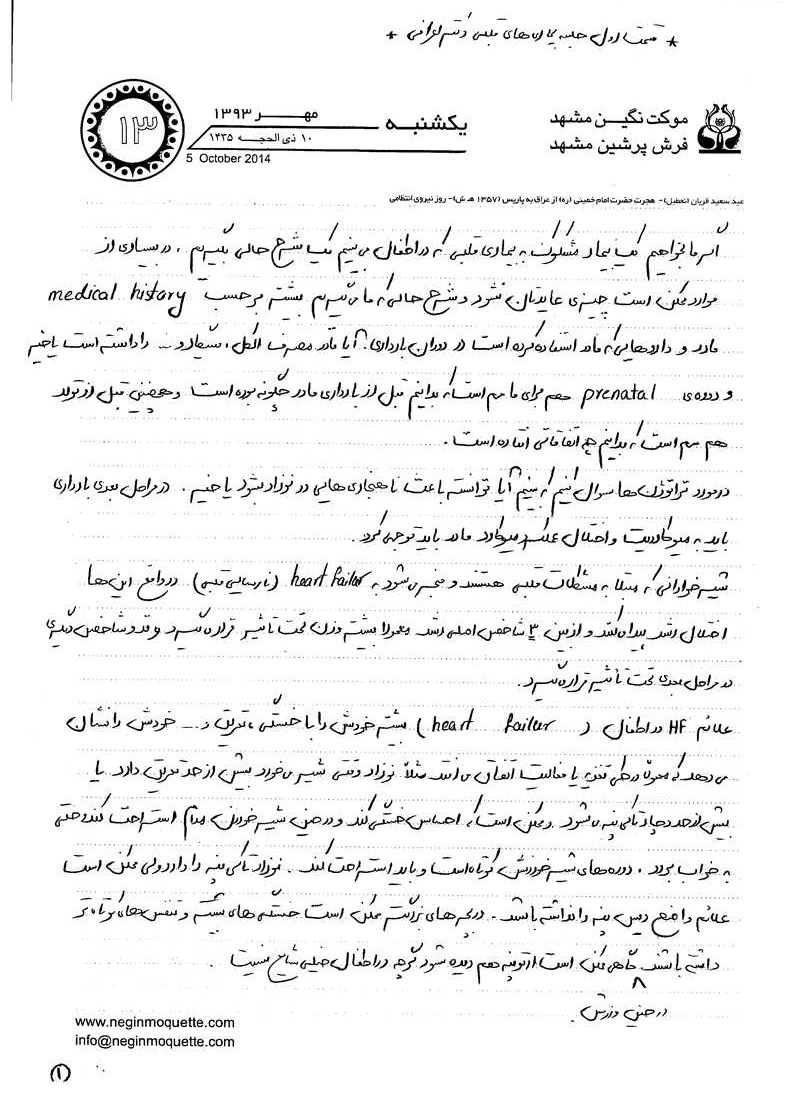 * قسمت اول جلسه بیماری‌های قلبی دکتر *
موکت نگین مشهد
فرش پرشین مشهد
یکشنبه
مهر ۱۳۹۳
۱۰ ذی الحجه ۱۴۳۵
5 October 2014
۱۳
عید سعید قربان (تعطیل)- هجرت حضرت امام خمینی (ره) از عراق به پاریس (۱۳۵۷ هـ ش)- روز نیروی انتظامی
اگر ما بخواهیم یک بیمار مشکوک به بیماری قلبی که در اطفال می بینیم یک شرح حالی بگیریم ، در بسیاری از
موارد ممکن است چیزی عایدتان نشود و شرح حالی که ما می گیریم بیشتر برحسب medical history
مادر و داروهایی که مادر استفاده کرده است در دوران بارداری. آیا مادر مصرف الکل ، سیگار و ... را داشته است یا خیر
و دوره ی prenatal هم برای ما مهم است که بدانیم قبل از بارداری مادر چگونه بوده است و همچنین قبل از تولد
هم مهم است که بدانیم چه اتفاقاتی افتاده است .
درمورد تراتوژن ها سوال کنیم که ببینیم آیا توانسته باعث ناهنجاری هایی در نوزاد بشود یا خیر . در مراحل بعدی بارداری
باید به میوکاردیت و اختلال عملکرد میوکارد مادر باید توجه کرد .
شیرخوارانی که مبتلا به مشکلات قلبی هستند و منجر می شود به heart failer (نارسایی قلبی) در واقع این ها
اختلال رشد پیدا می کنند و از بین ۳ شاخص اصلی رشد معمولا بیشتر وزن تحت تأثیر قرار می گیرد و دو شاخص دیگری
در مراحل بعدی تحت تأثیر قرار می گیرد.
علائم HF در اطفال ( heart failer ) بیشتر خودش را با خستگی ، تعریق و ... خودش را نشان
می دهد که معمولا در طی تغذیه یا فعالیت اتفاق می افتد مثلاً نوزاد وقتی شیر می خورد بیش از حد تعریق دارد یا
بیش از حد دچار تاکی پنه می شود . و ممکن است که احساس خستگی کند و در حین شیر خوردن مدام استراحت کند و حتی
به خواب برود . دوره های شیر خوردنش کوتاه است و باید استراحت کند . نوزاد تاکی پنه را دارد ولی ممکن است
علائم واضح دیس پنه را نداشته باشد . در بچه های بزرگتر ممکن است خستگی های بیشتر و تنفس های کوتاه تر
داشته باشند گاهی ممکن است ارتوپنه هم دیده شود گرچه در اطفال خیلی شایع نیست .
در حین ورزش .
www.neginmoquette.com
info@neginmoquette.com
۱